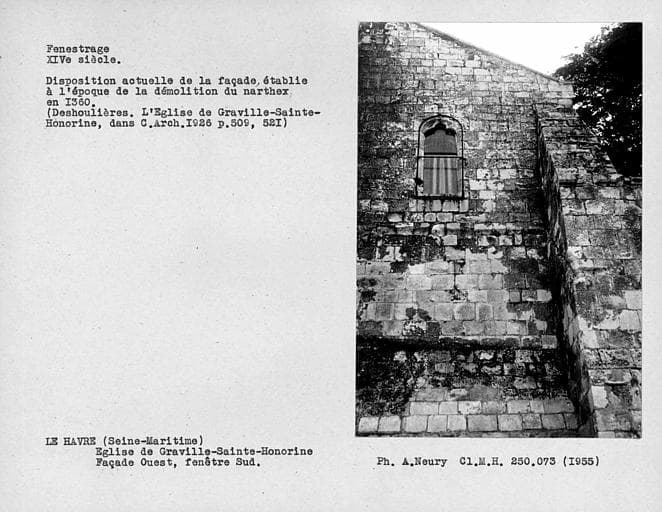 Fenestrage
XIVe siècle.
Disposition actuelle de la façade, établie
à l'époque de la démolition du narthex
en I360.
(Deshoulières. L'Eglise de Graville-Sainte-
Honorine, dans C.Arch.I926 p.509, 52I)
LE HAVRE (Seine-Maritime)
Eglise de Graville-Sainte-Honorine
Façade Ouest, fenêtre Sud.
Ph. A.Neury Cl.M.H. 250.073 (I955)